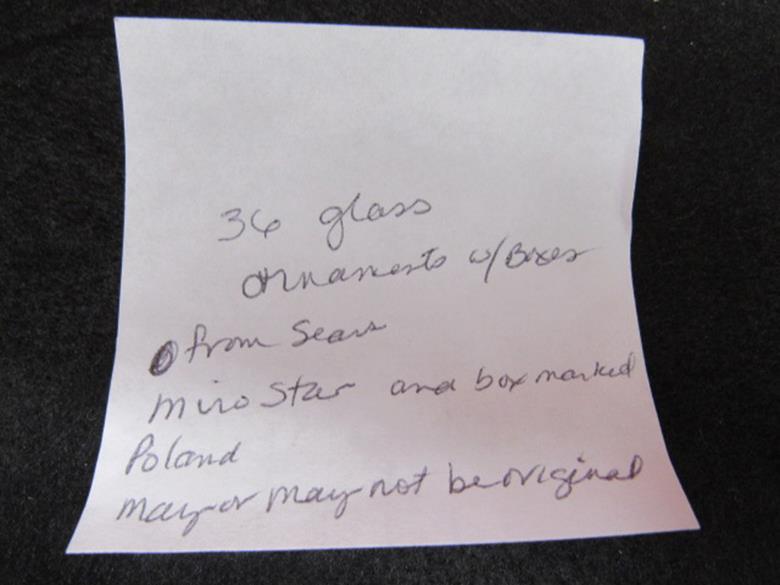 36 glass
ornaments w/Boxes
from Sears
Miro Star and box marked
Poland
may or may not be original